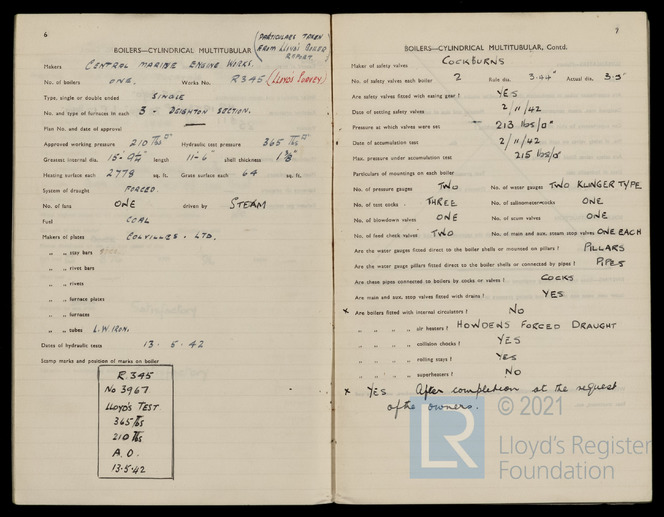 6
BOILERS—CYLINDRICAL MULTITUBULAR (PARTICULARS TAKEN FROM LLOYD'S BOILER REPORT.)
Makers CENTRAL MARINE ENGINE WORKS.
No. of boilers ONE. Works No. R345 (LLOYDS SURVEY)
Type, single or double ended SINGLE
No. and type of furnaces in each 3 - DEIGHTON SECTION.
Plan No. and date of approval —
Approved working pressure 210 lbs/□" Hydraulic test pressure 365 lbs/□"
Greatest internal dia. 15'- length 11'-6" shell thickness
Heating surface each 2778 sq. ft. Grate surface each 64 sq. ft.
System of draught FORCED.
No. of fans ONE driven by STEAM
Fuel COAL
Makers of plates COLVILLES. LTD.
" " stay bars
" " rivet bars
" " rivets
" " furnace plates
" " furnaces
" " tubes L.W. IRON.
Dates of hydraulic tests 13. 5. 42
Stamp marks and position of marks on boiler
R.345
No 3967
LLOYD'S TEST
365 lbs
210 lbs
A.O.
13.5.42
7
BOILERS—CYLINDRICAL MULTITUBULAR, Contd.
Maker of safety valves COCKBURNS
No. of safety valves each boiler 2 Rule dia. 3.44" Actual dia. 3.5"
Are safety valves fitted with easing gear? YES
Date of setting safety valves 2/11/42
Pressure at which valves were set 213 lbs/□"
Date of accumulation test 2/11/42
Max. pressure under accumulation test 215 lbs/□"
Particulars of mountings on each boiler
No. of pressure gauges TWO No. of water gauges TWO KLINGER TYPE
No. of test cocks THREE No. of salinometer cocks ONE
No. of blowdown valves ONE No. of scum valves ONE
No. of feed check valves TWO No. of main and aux. steam stop valves ONE EACH
Are the water gauges fitted direct to the boiler shells or mounted on pillars? PILLARS
Are the water gauge pillars fitted direct to the boiler shells or connected by pipes? PIPES
Are these pipes connected to boilers by cocks or valves? COCKS
Are main and aux. stop valves fitted with drains? YES
x Are boilers fitted with internal circulators? NO
" " " " air heaters? HOWDENS FORCED DRAUGHT
" " " " collision chocks? YES
" " " " rolling stays? YES
" " " " superheaters? NO
x YES After completion at the request
of the owners.
© 2021
LR
Lloyd's Register
Foundation